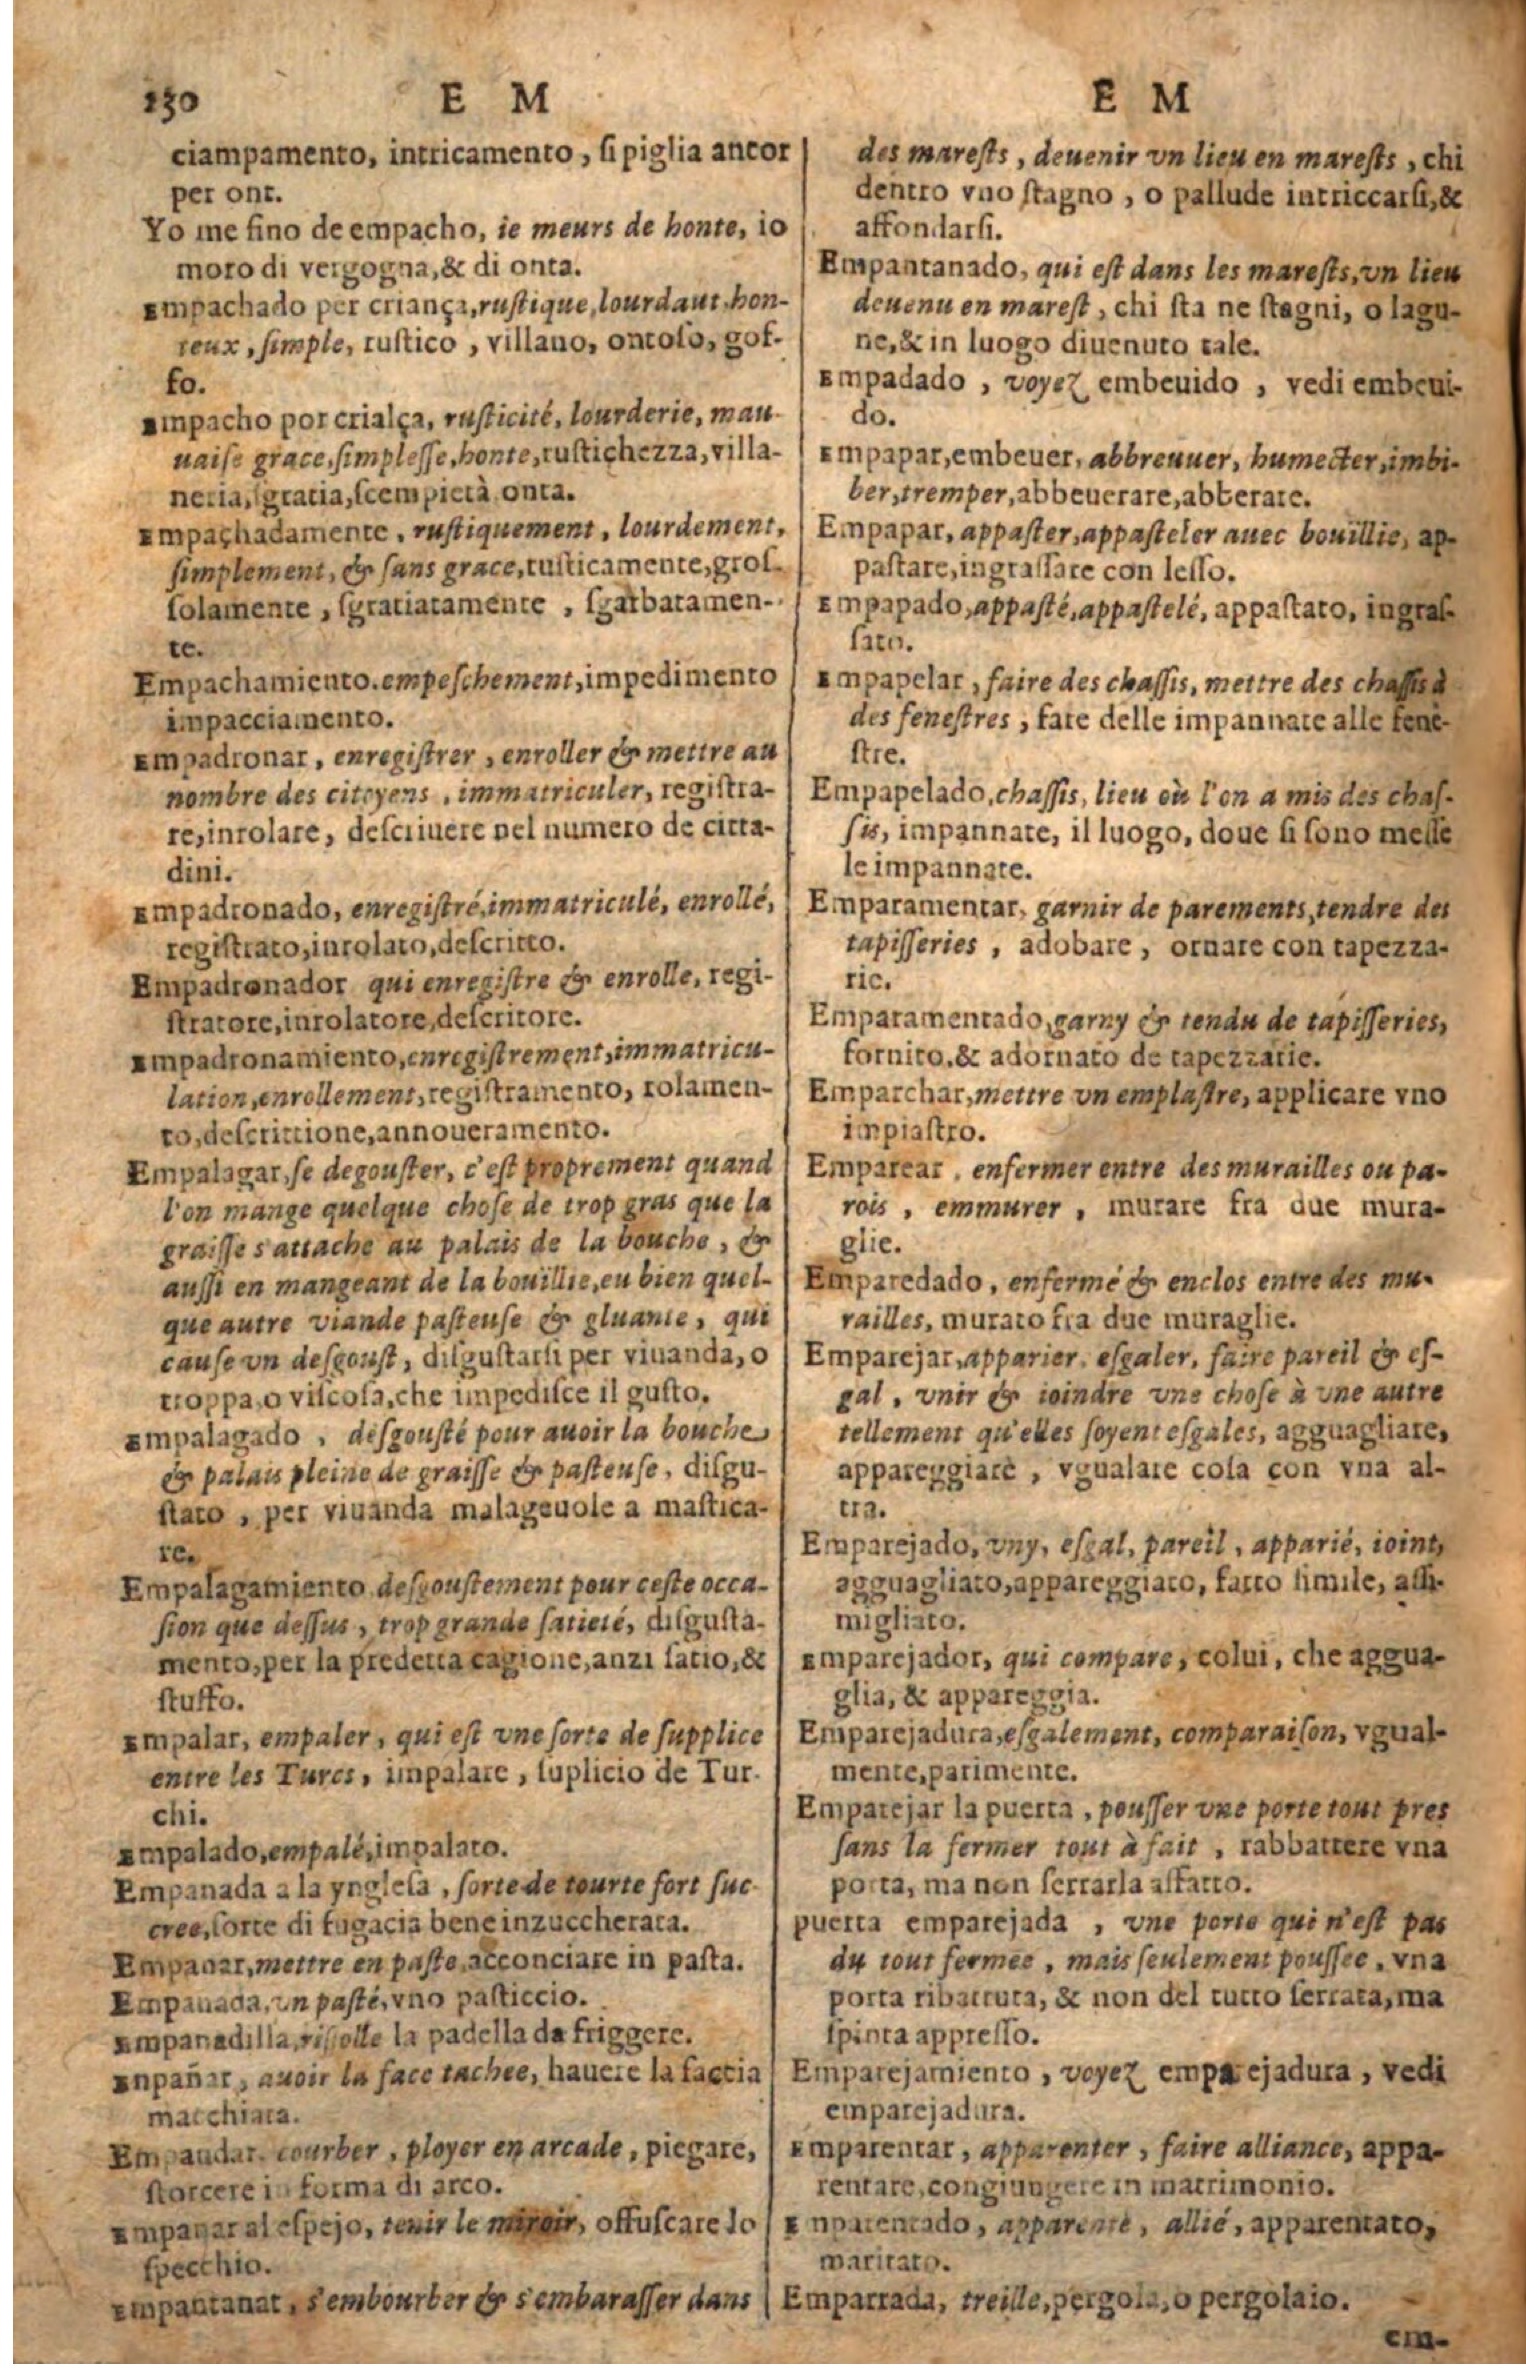 130 E M E M
ciampamento, intricamento, si piglia ancor
per ont.
Yo me fino de empacho, ie meurs de honte, io
moro di vergogna,& di onta.
Empachado per criança,rustique,lourdaut,hon-
teux,simple, rustico, villano, ontoso, gof-
fo.
Empacho por crialça, rusticité, lourderie, mau-
uaise grace,simplesse,honte,rustichezza,villa-
neria,sgratia,scempietà onta.
Empachadamente, rustiquement, lourdement,
simplement, & sans grace,rusticamente,gros-
solamente, sgratiatamente, sgarbatamen-
te.
Empachamiento.empeschement,impedimento
impacciamento.
Empadronar, enregistrer, enroller & mettre au
nombre des citoyens, immatriculer, registra-
re,inrolare, descriuere nel numero de citta-
dini.
Empadronado, enregistré,immatriculé, enrollé,
registrato,inrolato,descritto.
Empadronador qui enregistre & enrolle, regi-
stratore,inrolatore,descritore.
Empadronamiento,enregistrement,immatricu-
lation,enrollement,registramento, rolamen-
to,descrittione,annoueramento.
Empalagar,se degouster, c'est proprement quand
l'on mange quelque chose de trop gras que la
graisse s'attache au palais de la bouche, &
aussi en mangeant de la bouïllie,eu bien quel-
que autre viande pasteuse & gluante, qui
cause vn desgoust, disgustarsi per viuanda, o
troppa,o viscosa,che impedisce il gusto.
Empalagado, desgousté pour auoir la bouche
& palais pleine de graisse & pasteuse, disgu-
stato, per viuanda malageuole a mastica-
re.
Empalagamiento desgoustement pour ceste occa-
sion que dessus, trop grande satieté, disgusta-
mento,per la predetta cagione,anzi satio,&
stuffo.
Empalar, empaler, qui est vne sorte de supplice
entre les Turcs, impalare, suplicio de Tur-
chi.
Empalado,empalé,impalato.
Empanada a la ynglesa, sorte de tourte fort suc-
cree,sorte di fugacia bene inzuccherata.
Empanar,mettre en paste,acconciare in pasta.
Empanada,vn pasté,vno pasticcio.
Empanadilla,rissolle la padella da friggere.
Enpañar, auoir la face tachee, hauere la faccia
macchiata.
Empandar. courber, ployer en arcade, piegare,
storcere in forma di arco.
Empañar al espejo, tenir le miroir, offuscare lo
specchio.
Empantanar, s'embourber & s'embarasser dans
des marests, deuenir vn lieu en marests, chi
dentro vno stagno, o pallude intriccarsi,&
affondarsi.
Empantanado, qui est dans les marests,vn lieu
deuenu en marest, chi sta ne stagni, o lagu-
ne,& in luogo diuenuto tale.
Empadado, voyez embeuido, vedi embeui-
do.
Empapar,embeuer, abbreuuer, humecter,imbi-
ber,tremper,abbeuerare,abberare.
Empapar, appaster,appasteler auec bouïllie, ap-
pastare,ingrassare con lesso.
Empapado,appasté,appastelé, appastato, ingras-
sato.
Empapelar, faire des chassis, mettre des chassis à
des fenestres, fare delle impannate alle fene-
stre.
Empapelado,chassis, lieu où l'on a mis des chas-
sis, impannate, il luogo, doue si sono messe
le impannate.
Emparamentar, garnir de parements,tendre des
tapisseries, adobare, ornare con tapezza-
rie.
Emparamentado,garny & tendu de tapisseries,
fornito,& adornato de tapezzarie.
Emparchar,mettre vn emplastre, applicare vno
impiastro.
Emparear, enfermer entre des murailles ou pa-
rois, emmurer, murare fra due mura-
glie.
Emparedado, enfermé & enclos entre des mu-
railles, murato fra due muraglie.
Emparejar,apparier, esgaler, faire pareil & es-
gal, vnir & ioindre vne chose à vne autre
tellement qu'elles soyent esgales, agguagliare,
appareggiare, vgualare cosa con vna al-
tra.
Emparejado, vny, esgal, pareil, apparié, ioint,
agguagliato,appareggiato, fatto simile, assi-
migliato.
Emparejador, qui compare, colui, che aggua-
glia, & appareggia.
Emparejadura,esgalement, comparaison, vgual-
mente,parimente.
Emparejar la puerta, pousser vne porte tout pres
sans la fermer tout à fait, rabbattere vna
porta, ma non serrarla affatto.
puerta emparejada, vne porte qui n'est pas
du tout fermée, mais seulement poussee, vna
porta ribattuta, & non del tutto serrata,ma
spinta appresso.
Emparejamiento, voyez emparejadura, vedi
emparejadura.
Emparentar, apparenter, faire alliance, appa-
rentare,congiungere in matrimonio.
Enparentado, apparenté, allié, apparentato,
maritato.
Emparrada, treille,pergola,o pergolaio.
em-